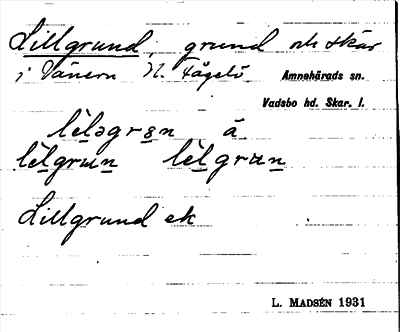 Lillgrund, grund och skär
i Vänern N. Fågelö Amnehärads sn.
Vadsbo hd. Skar. l.
lèləgrən å
lèlgrun lèlgrun
Lillgrund ek
L. MADSÉN 1931